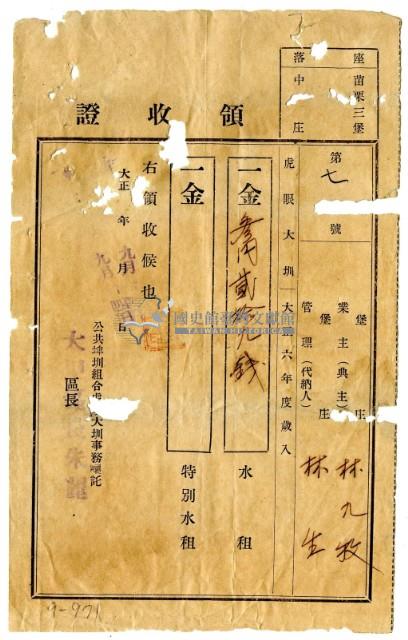 座落
苗栗三堡
中 庄
領收證
第七 號
堡 庄
業主(典主) 林九牧
堡 庄
管理(代納人) 林生
虎眼大圳 大正六年度歲入
一金 貳 九錢 水租
一金 特別水租
右領收候也
大正 年 月 日
公共埤圳組合虎 大圳事務囑託
區長
大 朱麗
國史館臺灣文獻館
TAIWAN HISTORICA
9-971